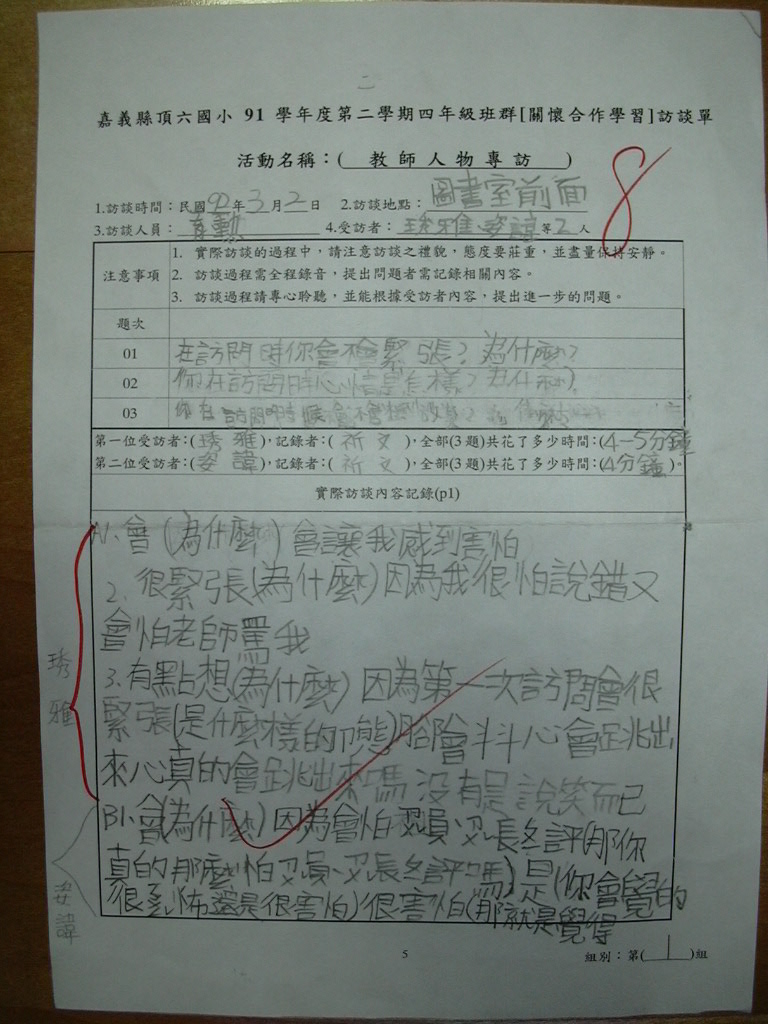 二
嘉義縣頂六國小 91 學年度第二學期四年級班群[關懷合作學習]訪談單
8
活動名稱：( 教師人物專訪 )
1.訪談時間：民國92年3月2日 2.訪談地點：圖書室前面
3.訪談人員： 4.受訪者：琇雅 姿諱等2人
注意事項
1. 實際訪談的過程中，請注意訪談之禮貌，態度要莊重，並盡量保持安靜。
2. 訪談過程需全程錄音，提出問題者需記錄相關內容。
3. 訪談過程請專心聆聽，並能根據受訪者內容，提出進一步的問題。
題次
01 在訪問時你會不會緊張？為什麼？
02 你在訪問時心情是怎樣？為什麼？
03 你在訪問時候會不會想
第一位受訪者：(琇雅)，記錄者：(祈文)，全部(3題)共花了多少時間：(4-5分鐘
第二位受訪者：(姿諱)，記錄者：(祈文)，全部(3題)共花了多少時間：(4分鐘)。
實際訪談內容記錄(p1)
A1、會(為什麼)會讓我感到害怕
2. 很緊張(為什麼)因為我很怕說錯又
會怕老師罵我
3.有點想(為什麼)因為第一次訪問會很
緊張(是什麼樣的 腳會抖抖心會跳出
來心真的會跳出來嗎 沒有是說笑而已
琇雅
B1、會(為什麼)因為會怕 (那你
真的那麼怕 嗎)是(你會覺的
很恐怖還是很害怕)很害怕(那就是覺得
姿諱
5
組別：第(1)組